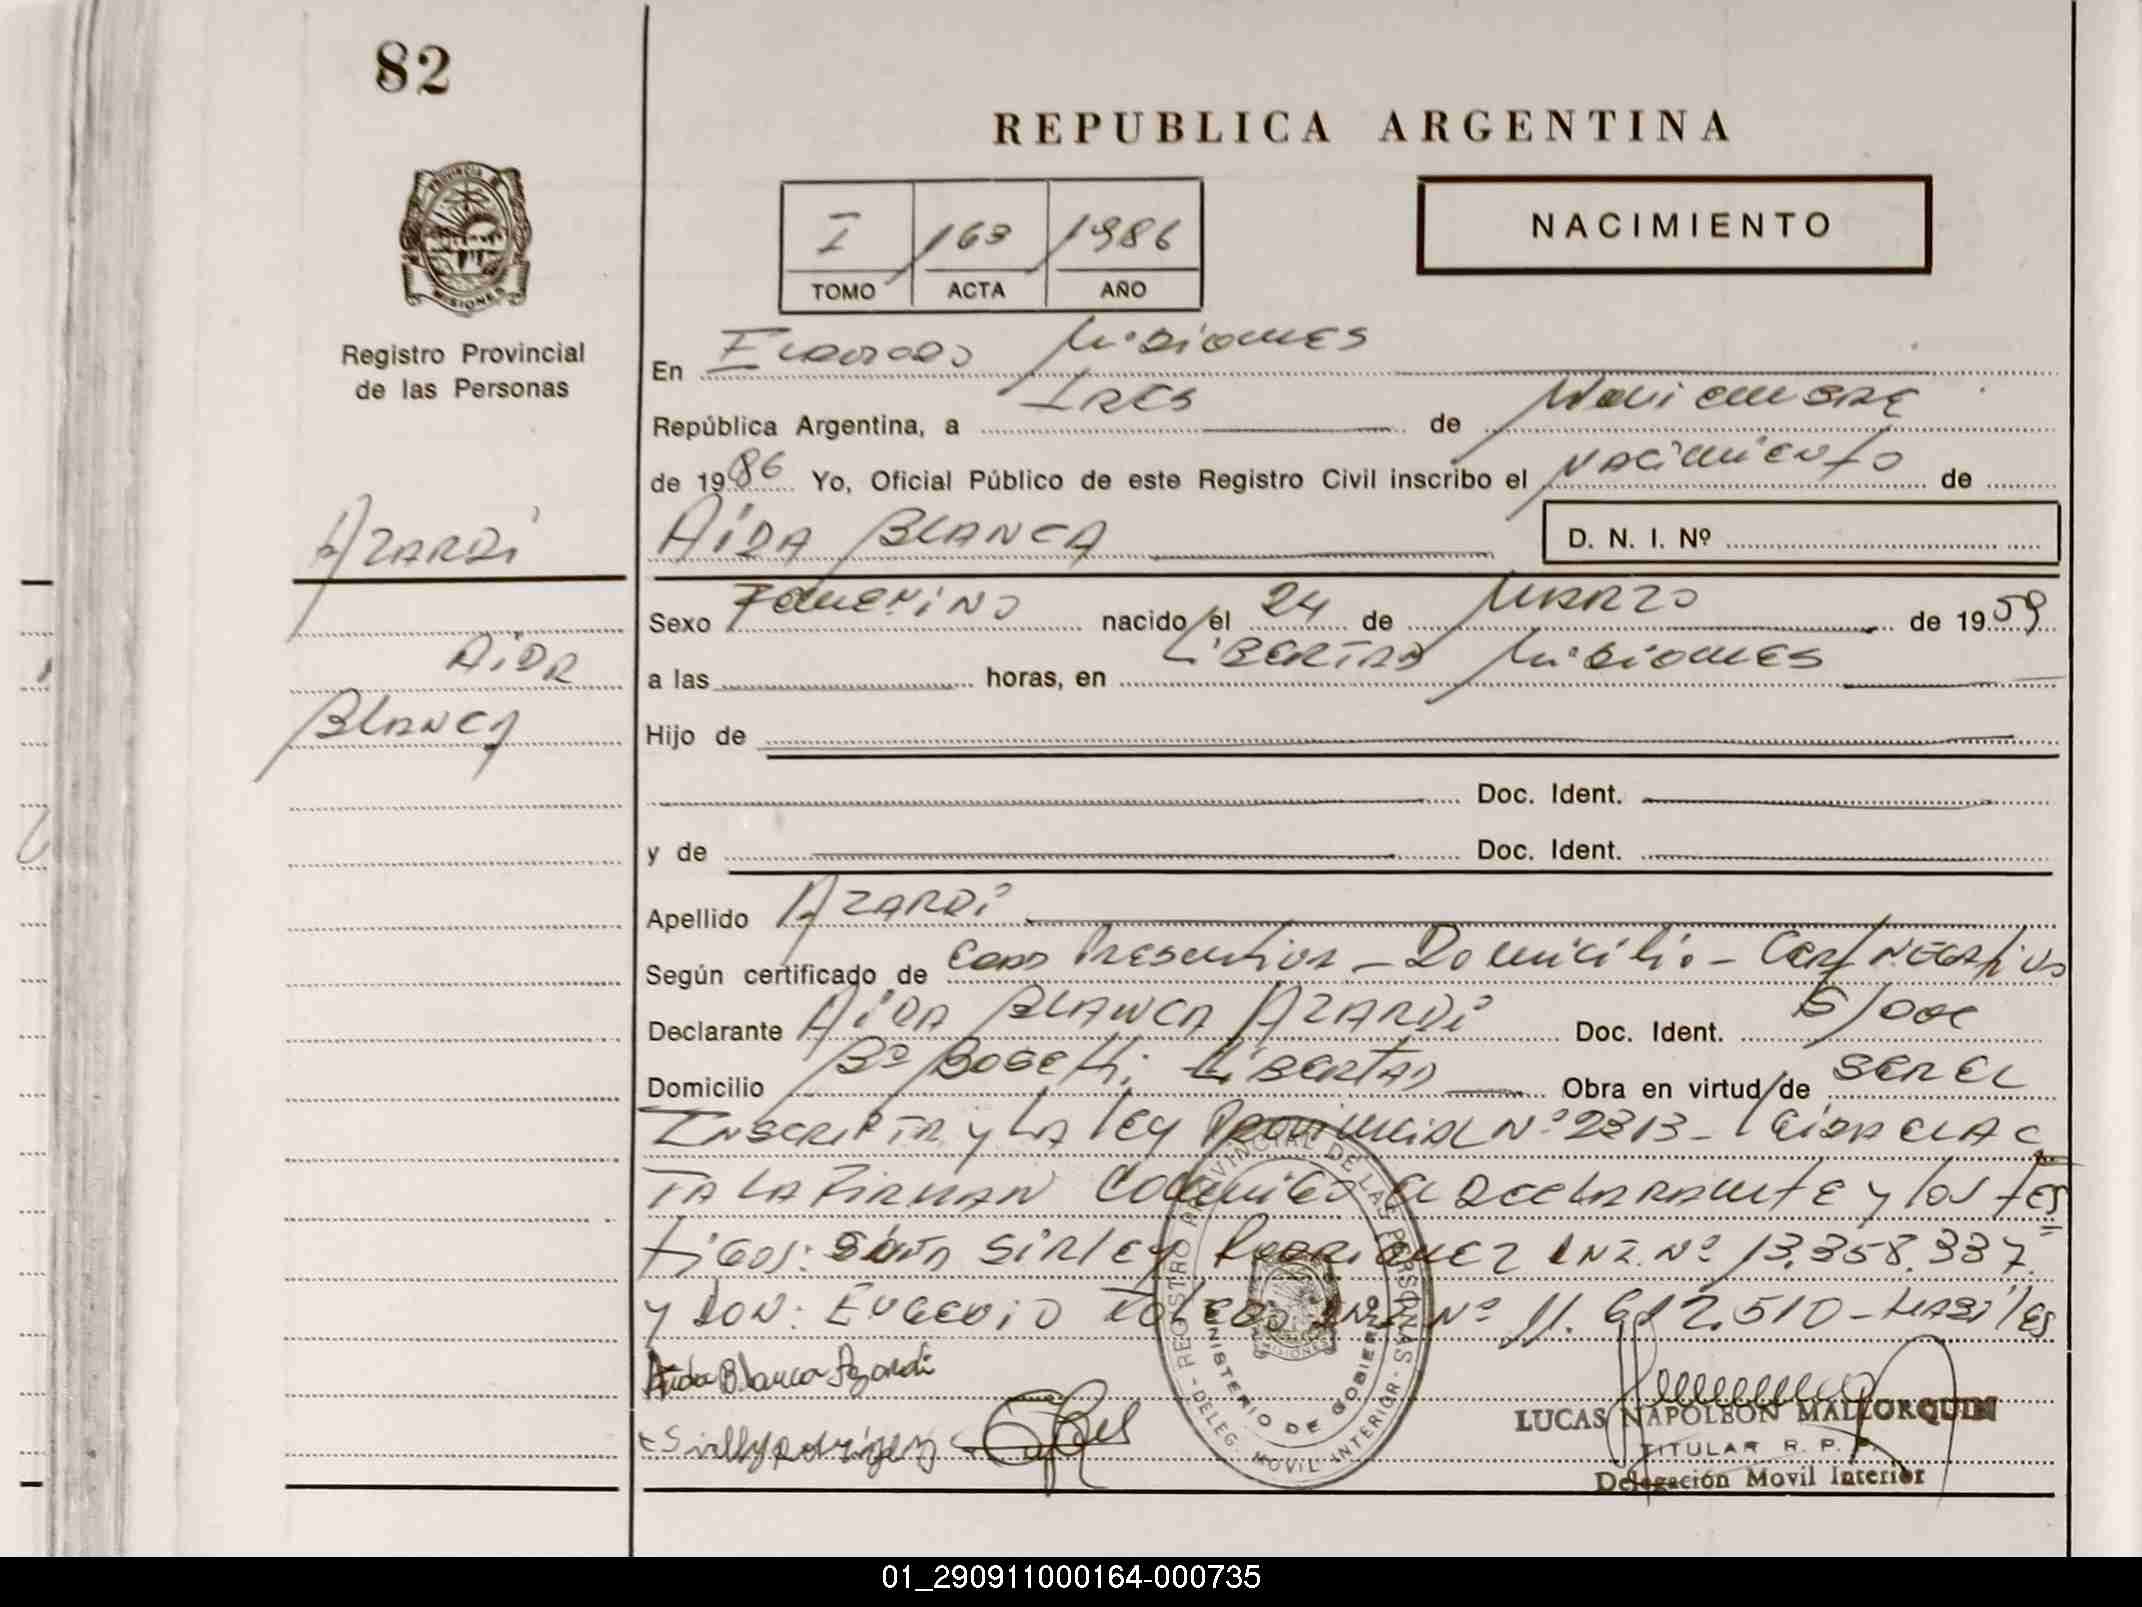 82
REPUBLICA ARGENTINA
PROVINCIA DE
MISIONES
NACIMIENTO
I 163 1986
TOMO ACTA AÑO
Registro Provincial
de las Personas
En Eldorado Misiones
República Argentina, a Tres de Noviembre
de 1986 Yo, Oficial Público de este Registro Civil inscribo el Nacimiento de
AZARDi
AiDA BLANCA
D. N. I. Nº
Sexo Femenino nacido el 24 de MARZO de 1959
AiDA
a las horas, en LiBERTAD Misiones
BLANCA
Hijo de
Doc. Ident.
y de Doc. Ident.
Apellido AZARDi
Según certificado de Edad Presuntiva - Domicilio - Cert Negativo
Declarante AiDA BLANCA AZARDi Doc. Ident. S/Doc
Domicilio Bº Bosetti LiBERTAD Obra en virtud de SER EL
INSCRIPTA y LA LEY PROVINCIAL Nº 2313 - LEIDA EL AC
TA LA FIRMAN CONMIGO El DECLARANTE y los TES
tigos: SIRLEY RODRIGUEZ DNI. Nº 13.358.337
y DON: EUGENIO TOLEDO DNI Nº 11.612.510 - HABILES
Aida Blanca Azardi
REGISTRO PROVINCIAL DE LAS PERSONAS
MINISTERIO DE GOBIERNO
MISIONES
- DELEG. MOVIL INTERIOR -
LUCAS NAPOLEON MALLORQUIN
TITULAR R. P. P.
Delegación Movil Interior
01_290911000164-000735